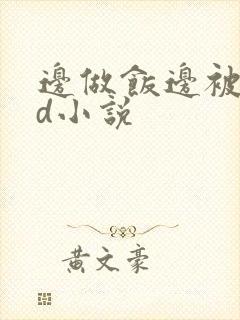 邊做飯邊被
d小說
黃文豪